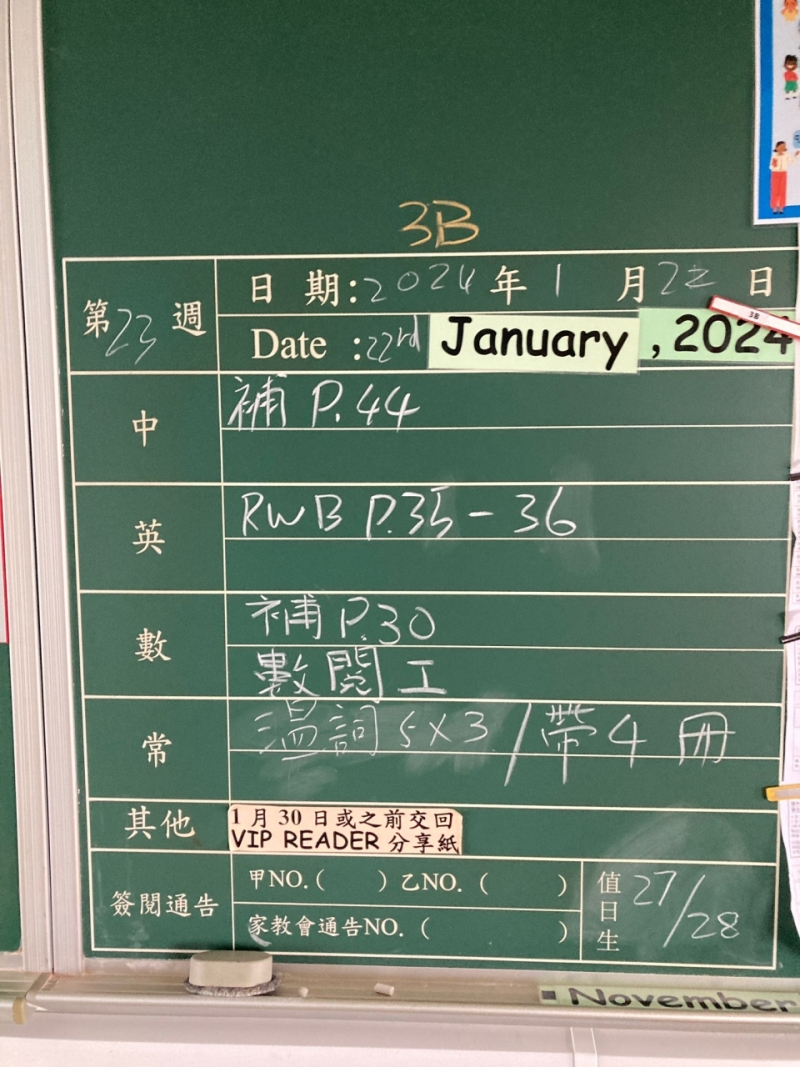 3B
第23週
日 期:2024年1月22日
Date :22rd January, 2024
中
補 P.44
英
RWB P.35-36
數
補 P.30
數閱工
常
溫詞 5x3/帶4冊
其他
1月30日或之前交回
VIP READER 分享紙
簽閱通告
甲NO.( )乙NO.( )
家教會通告NO.( )
值日生 27/28
November